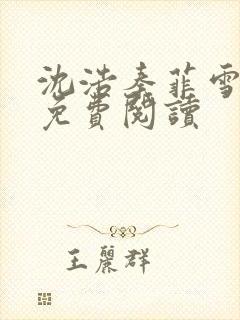 沈浩秦菲雪
免費閱讀
王麗群